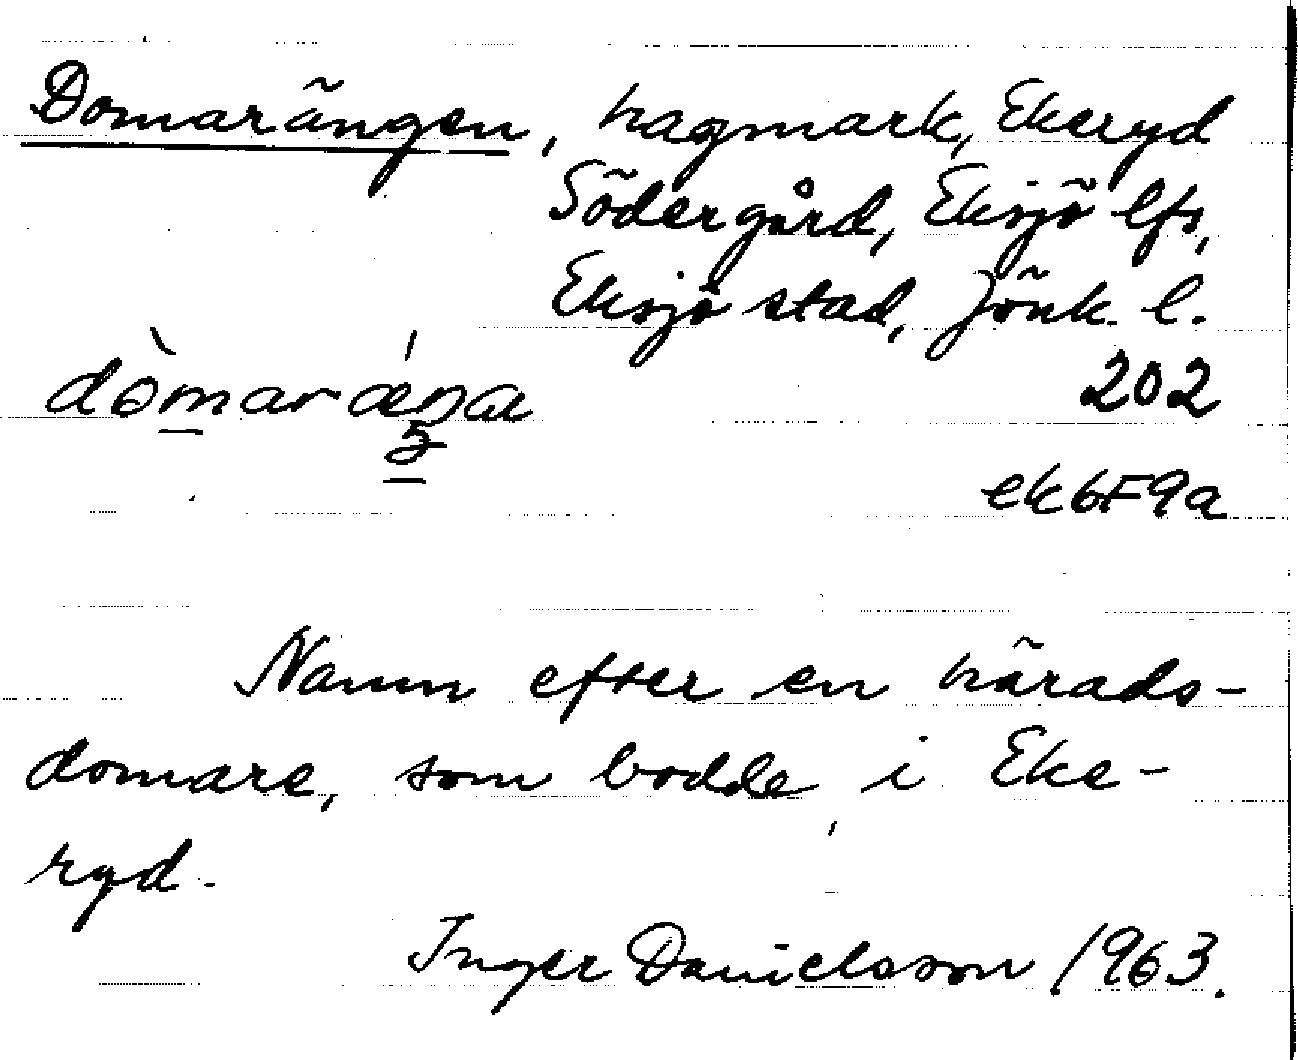 Domarängen, hagmark, Ekeryd
Södergård, Eksjö lfs,
Eksjö stad, Jönk. l.
dòmarǽŋa
202
ek6F9a
Namn efter en härads-
domare, som bodde i Eke-
ryd.
Inger Danielsson 1963.